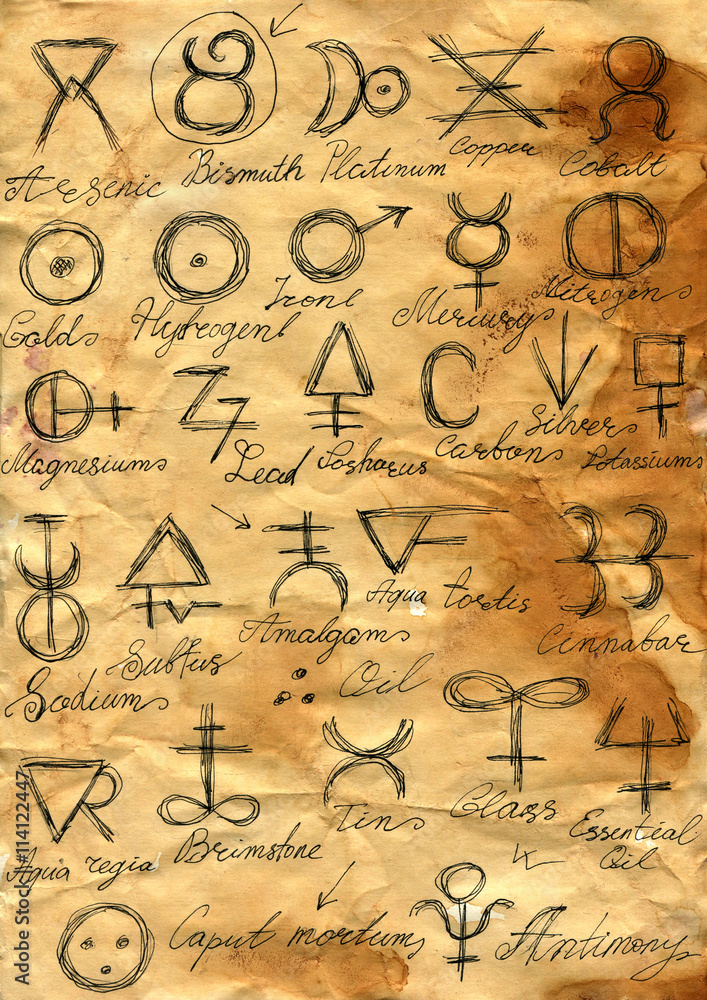 Arsenic
Bismuth
Platinum
Copper
Cobalt
Golds
Hydrogenl
Ironl
Mercurys
Nitrogens
Magnesiums
Lead
Carbons
Silvers
Potassiums
Sodiums
Amalgams
Aqua tortis
Cinnabar
Oil
Aqua regia
Brimstone
Tins
Glass
Essential
Oil
Caput mortums
Antimonys
Adobe Stock | #114122447